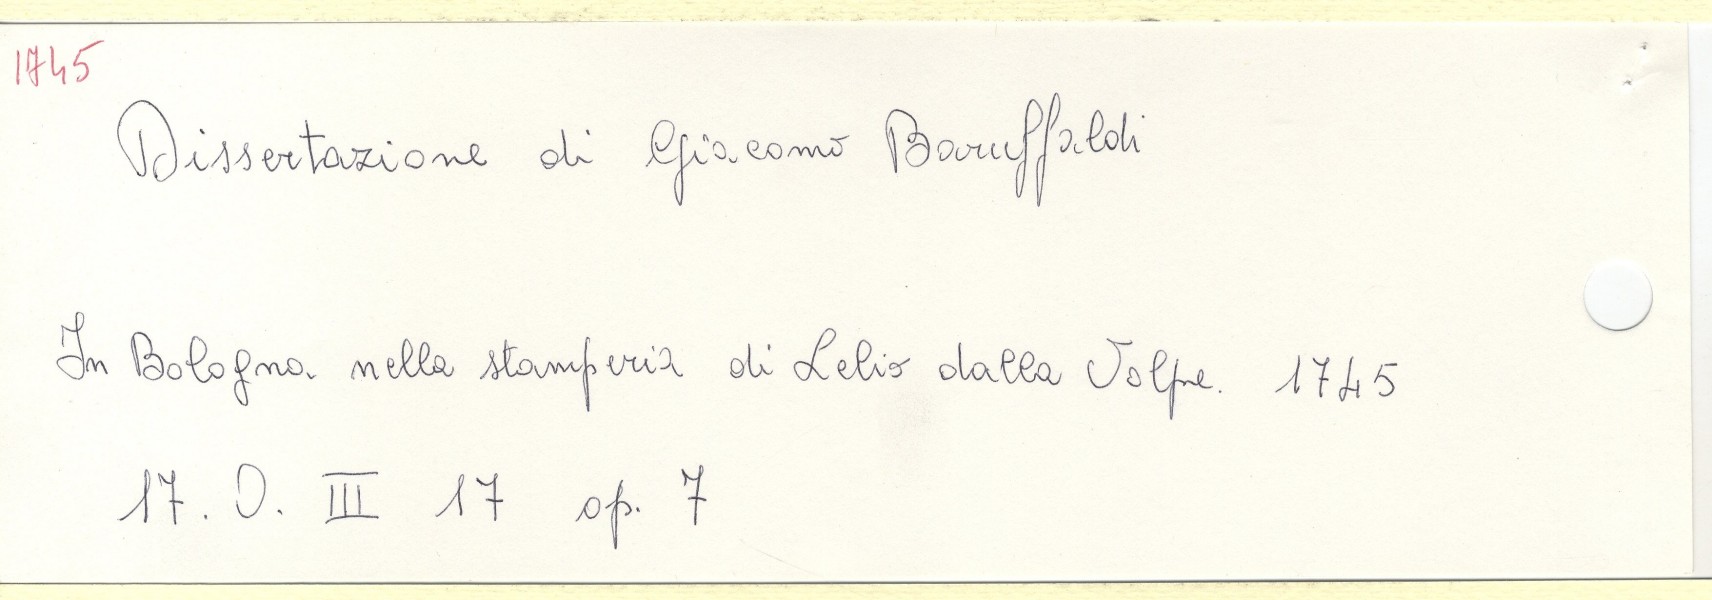 1745
Dissertazione di Giacomo Baruffaldi
In Bologna nella stamperia di Lelio dalla Volpe. 1745
17. O. III 17 op. 7